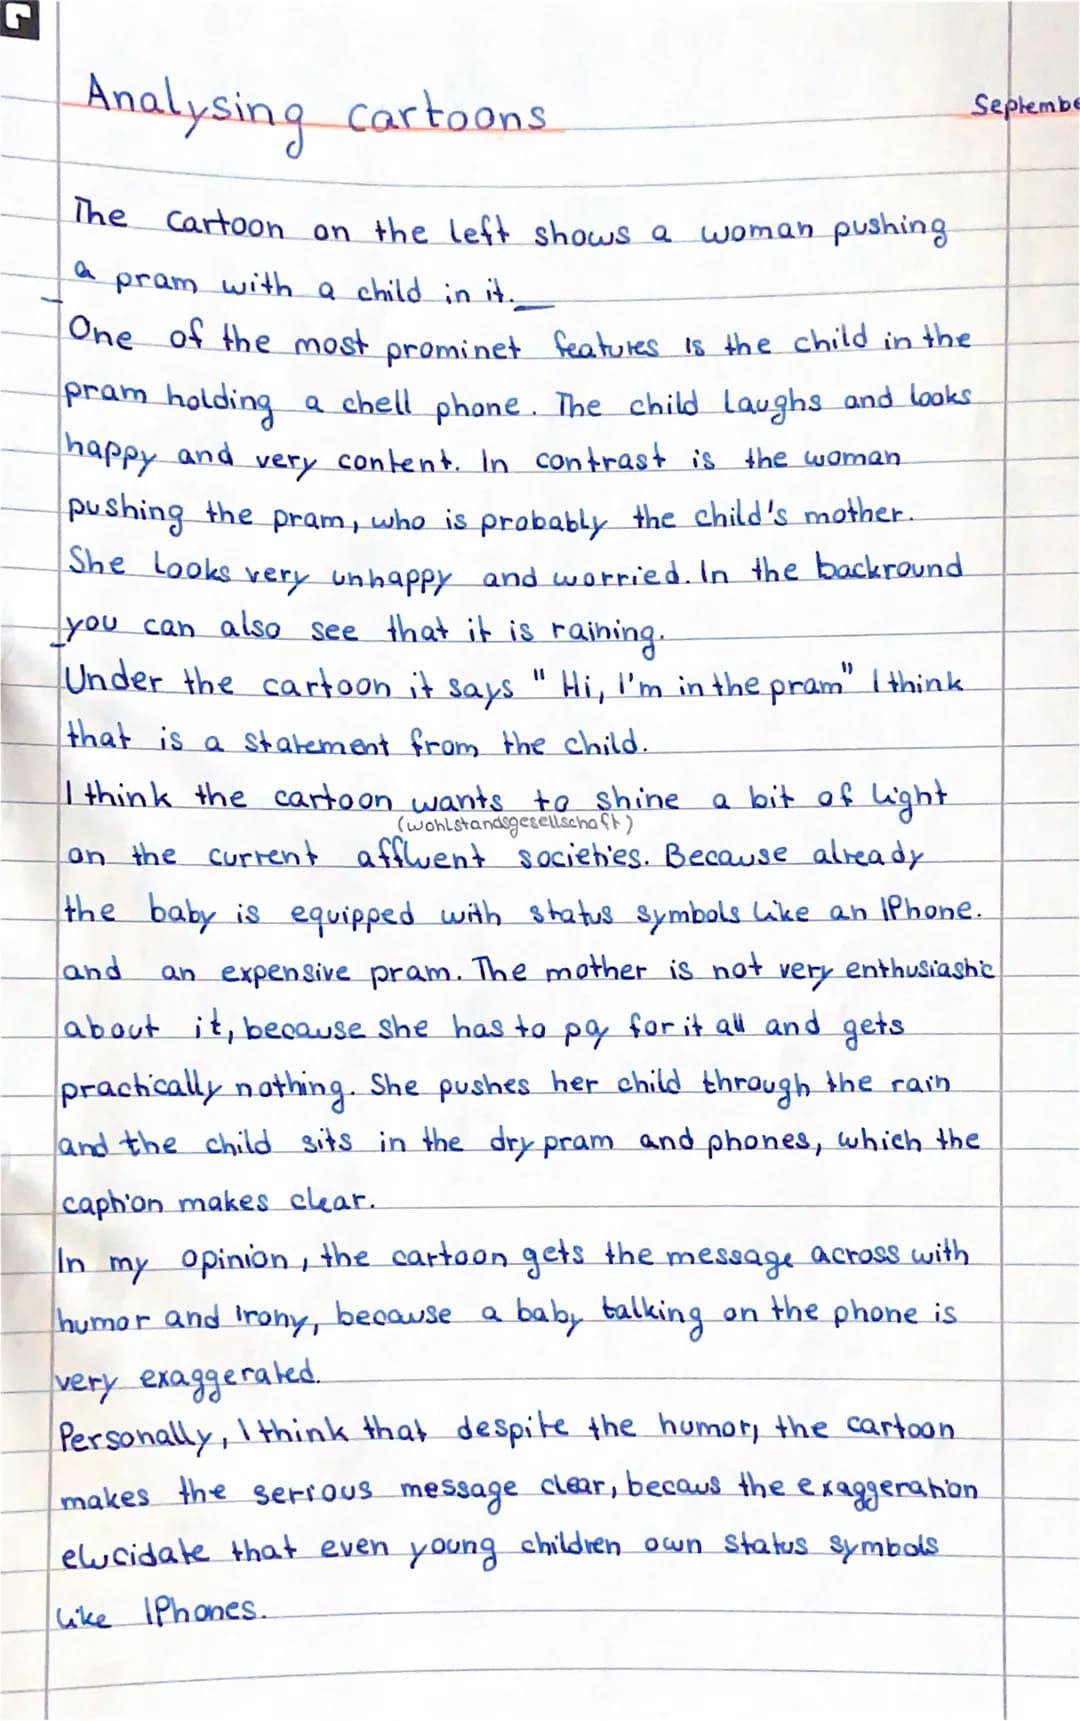 Analysing cartoons
Septembe
The cartoon on the left shows a woman pushing
a pram with a child in it.
One of the most prominet features is the child in the
pram holding a chell phone. The child laughs and looks
happy and very content. In contrast is the woman
pushing the pram, who is probably the child's mother.
She looks very unhappy and worried. In the backround
you can also see that it is raining.
Under the cartoon it says "Hi, I'm in the pram" I think
that is a statement from the child.
I think the cartoon wants to shine a bit of light
(wohlstandsgesellschaft)
on the current affluent societies. Because already
the baby is equipped with status symbols like an IPhone.
and an expensive pram. The mother is not very enthusiastic
about it, because she has to pay for it all and gets
practically nothing. She pushes her child through the rain
and the child sits in the dry pram and phones, which the
caption makes clear.
In my opinion, the cartoon gets the message across with
humor and irony, because a baby talking on the phone is
very exaggerated.
Personally, I think that despite the humor, the cartoon
makes the serious message clear, becaus the exaggeration
elucidate that even young children own status symbols
like IPhones.